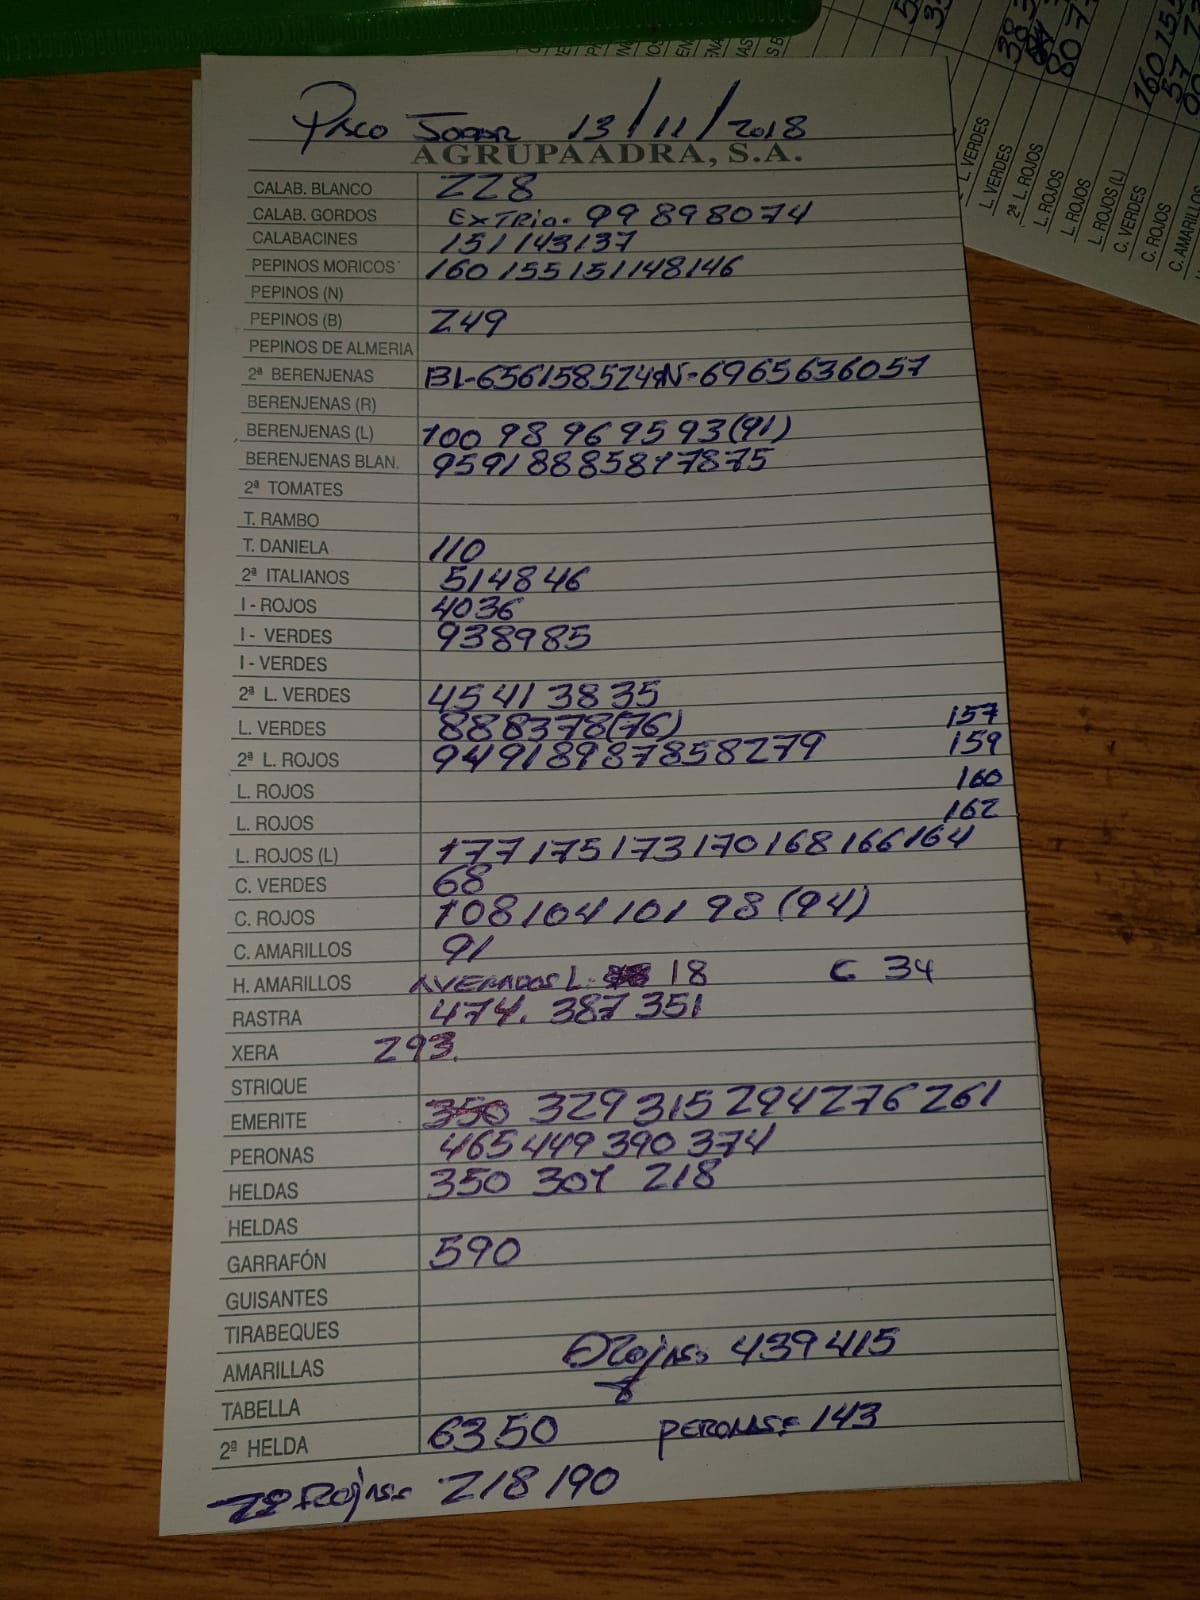 Paco Jogar 13/11/2018
AGRUPAADRA, S.A.
CALAB. BLANCO 228
CALAB. GORDOS EXTRIA- 99 89 80 74
CALABACINES 151 143 137
PEPINOS MORICOS 160 155 151 148 146
PEPINOS (N)
PEPINOS (B) 249
PEPINOS DE ALMERIA
2ª BERENJENAS Bl-65 61 58 52 47 N-69 65 63 60 57
BERENJENAS (R)
BERENJENAS (L) 100 98 96 95 93 (91)
BERENJENAS BLAN. 95 91 88 85 81 78 75
2ª TOMATES
T. RAMBO
T. DANIELA 110
2ª ITALIANOS 51 48 46
I - ROJOS 40 36
I - VERDES 93 89 85
I - VERDES
2ª L. VERDES 45 41 38 35
L. VERDES 88 83 78 (76) 157
2ª L. ROJOS 94 91 89 87 85 82 79 159
L. ROJOS 160
L. ROJOS 162
L. ROJOS (L) 177 175 173 170 168 166 164
C. VERDES 68
C. ROJOS 108 104 101 98 (94)
C. AMARILLOS 91
H. AMARILLOS AVERADOS L- 18 C 34
RASTRA 474. 387 351
XERA 293.
STRIQUE
EMERITE 350 329 315 294 276 261
PERONAS 465 449 390 374
HELDAS 350 307 218
HELDAS
GARRAFÓN 590
GUISANTES
TIRABEQUES
AMARILLAS Rojas- 439 415
TABELLA
2ª HELDA 63 50 PERONAS= 143
2ª Rojas- 218 190
38
80 77
160 155
57
L. VERDES
L. VERDES
2ª L. ROJOS
L. ROJOS
L. ROJOS
L. ROJOS (L)
C. VERDES
C. ROJOS